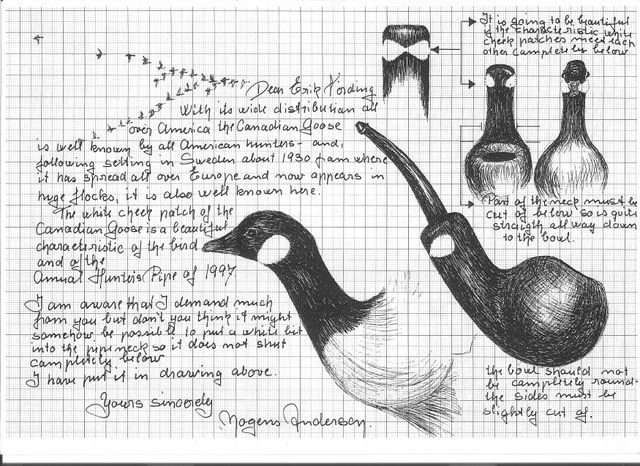 Dear Erik Nording
With its wide distribution all
over America the Canadian Goose
is well known by all American hunters - and,
following setling in Sweden about 1930 from where
it has spread all over Europe and now appears in
huge flocks, it is also well known here.
The white cheek patch of the
Canadian Goose is a beautiful
characteristic of the bird
and of the
Annual Hunters Pipe of 1997.
I am aware that I demand much
from you but don't you think it might
somehow be possible to put a white bit
into the pipeneck so it does not shut
completely below
I have put it in drawing above.
Yours sincerely
Mogens Andersen.
It is going to be beautiful
if the characteristic white
cheek patches meet each
other completely below
Part of the neck must be
cut of below so is quite
straigth all way down
to the bowl.
the bowl should not
be completely round-
the sides must be
slightly cut of.